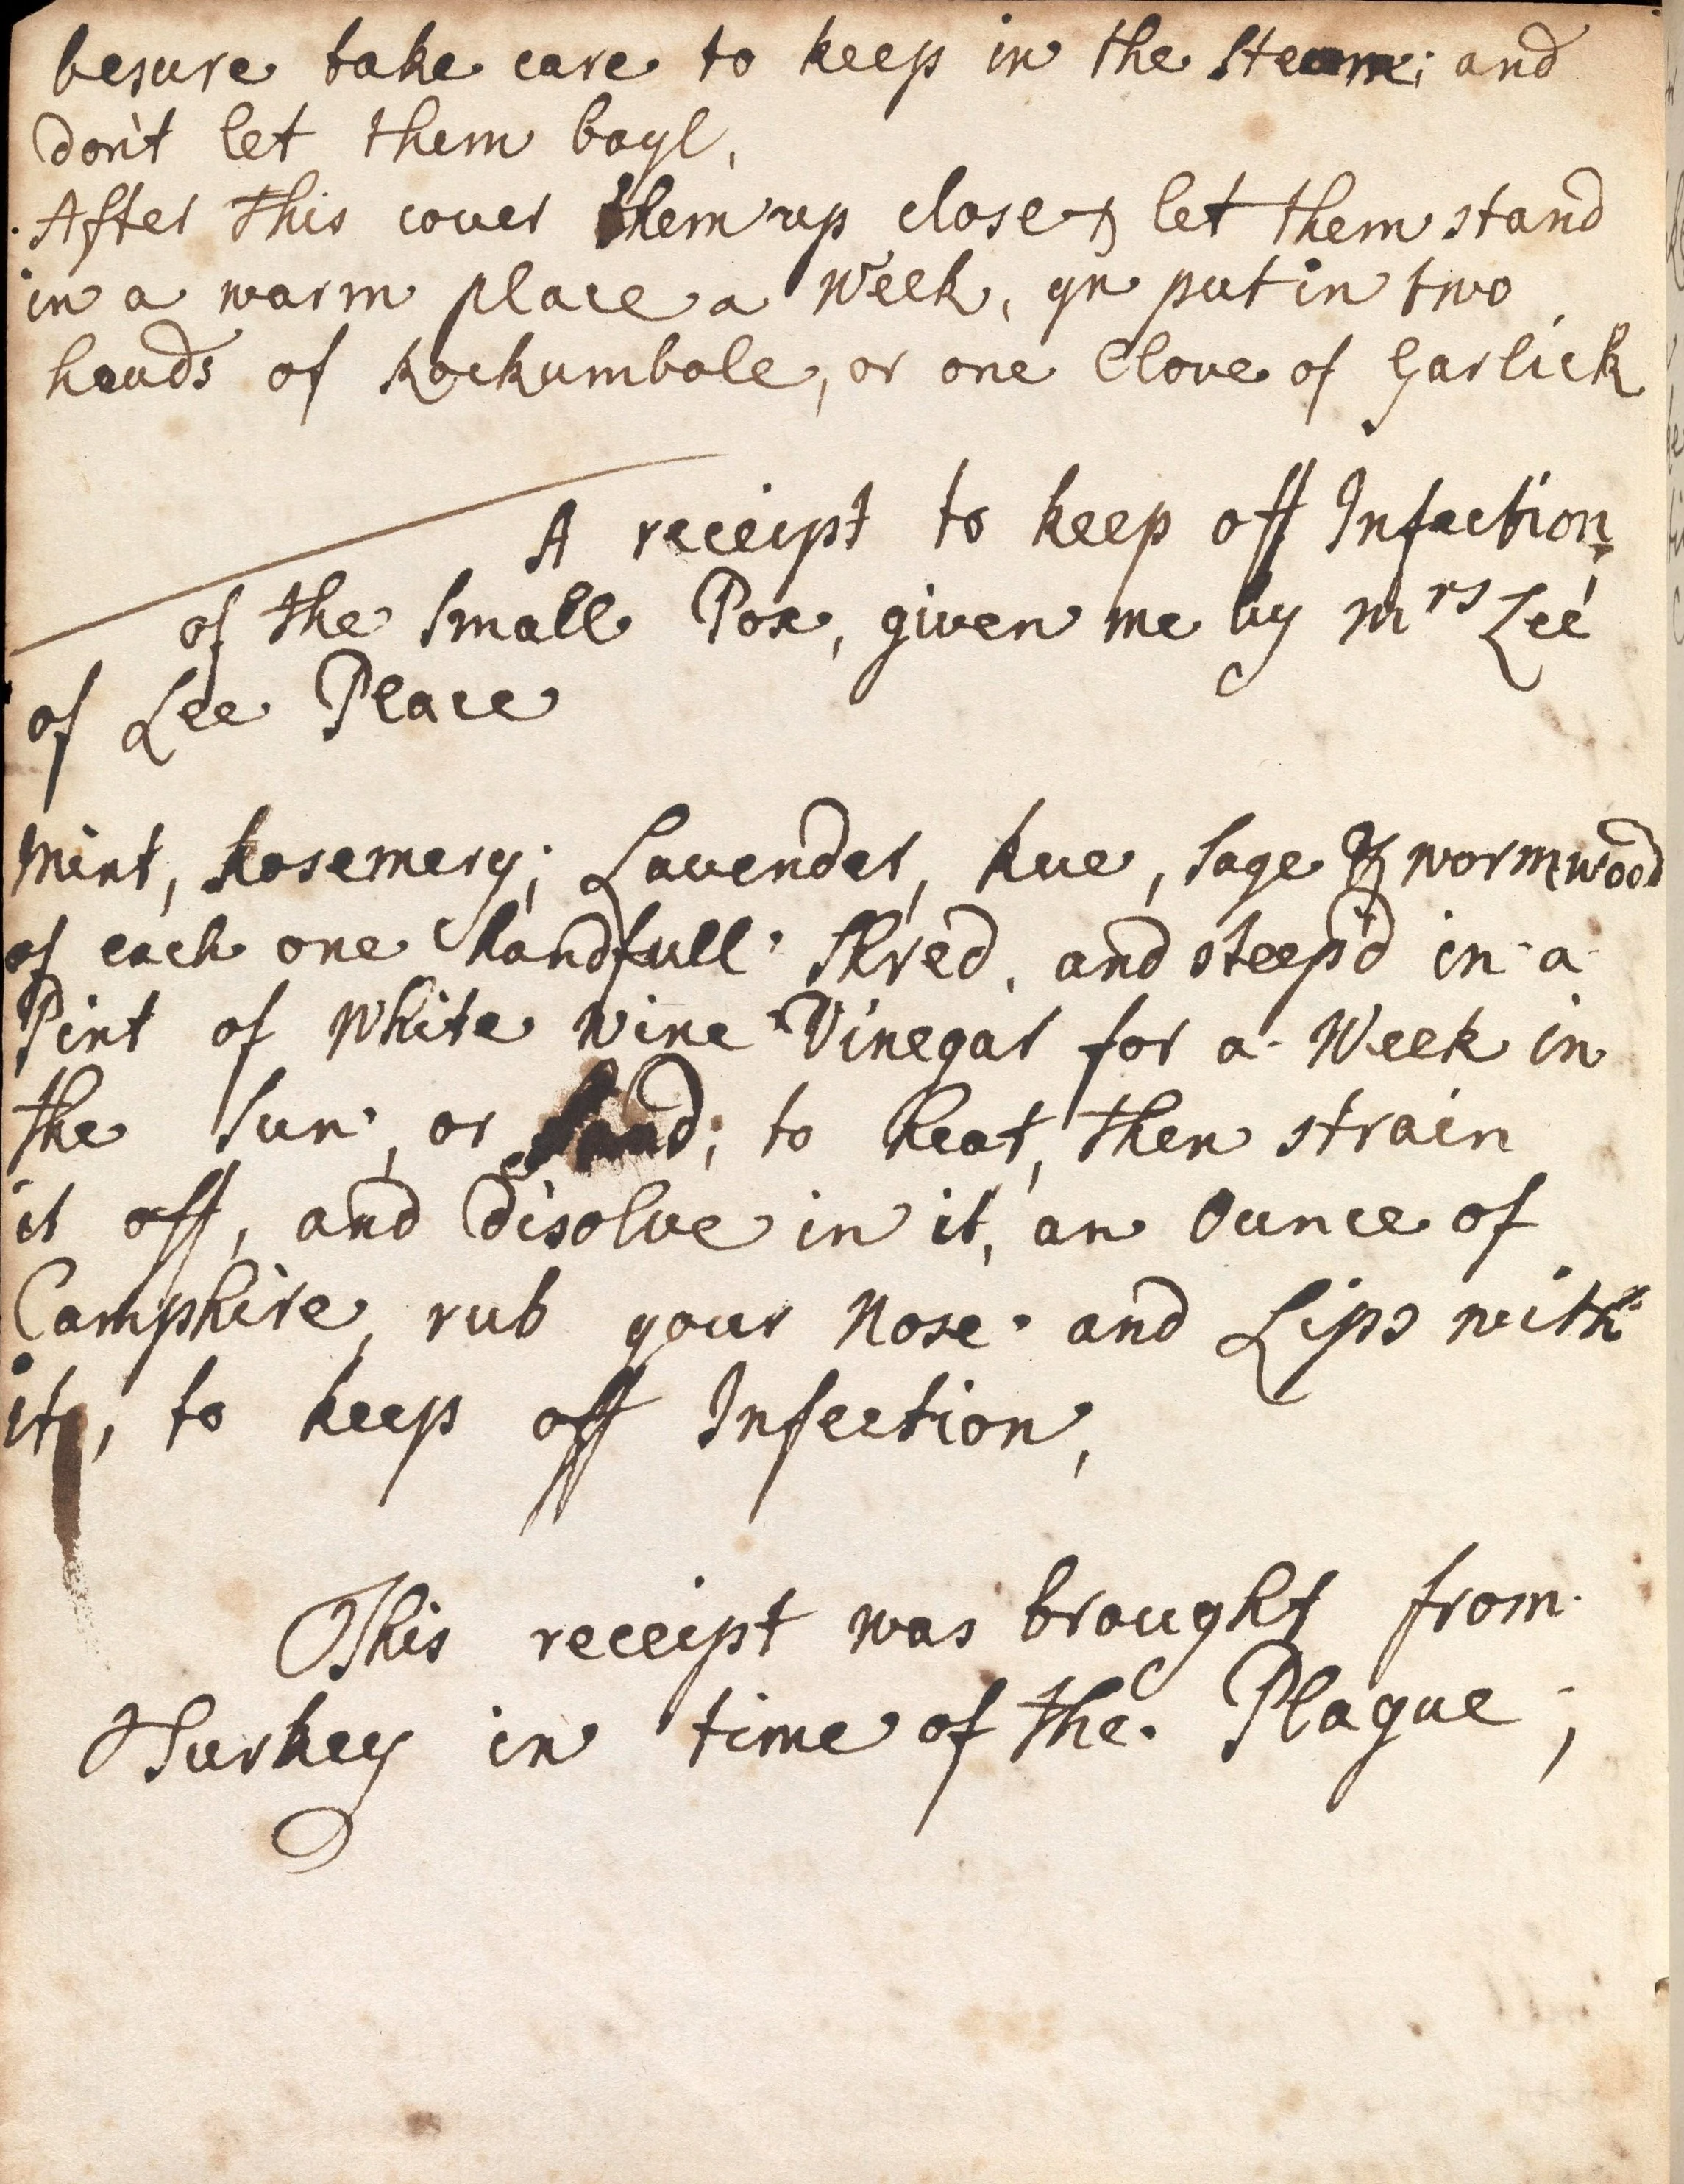 besure take care to keep in the Steam; and
don't let them boyl,
After this couer them up close & let them stand
in a warm place a Week, yn put in two
heads of Rockumbole, or one Cloue of Garlick
A receipt to keep off Infection
of the Small Pox, given me by Mrs Lee
of Lee Place
Mint, Rosemery; Lauender, Rue, Sage & wormwood
of each one handfull Shred, and steep'd in a
Pint of White Wine Vinegar for a Week in
the Sun, or Sand; to heat, then strain
it off, and Disolue in it, an Ounce of
Camphire, rub your Nose and Lips with
it, to keep off Infection,
This receipt was brought from
Turkey in time of the Plague;